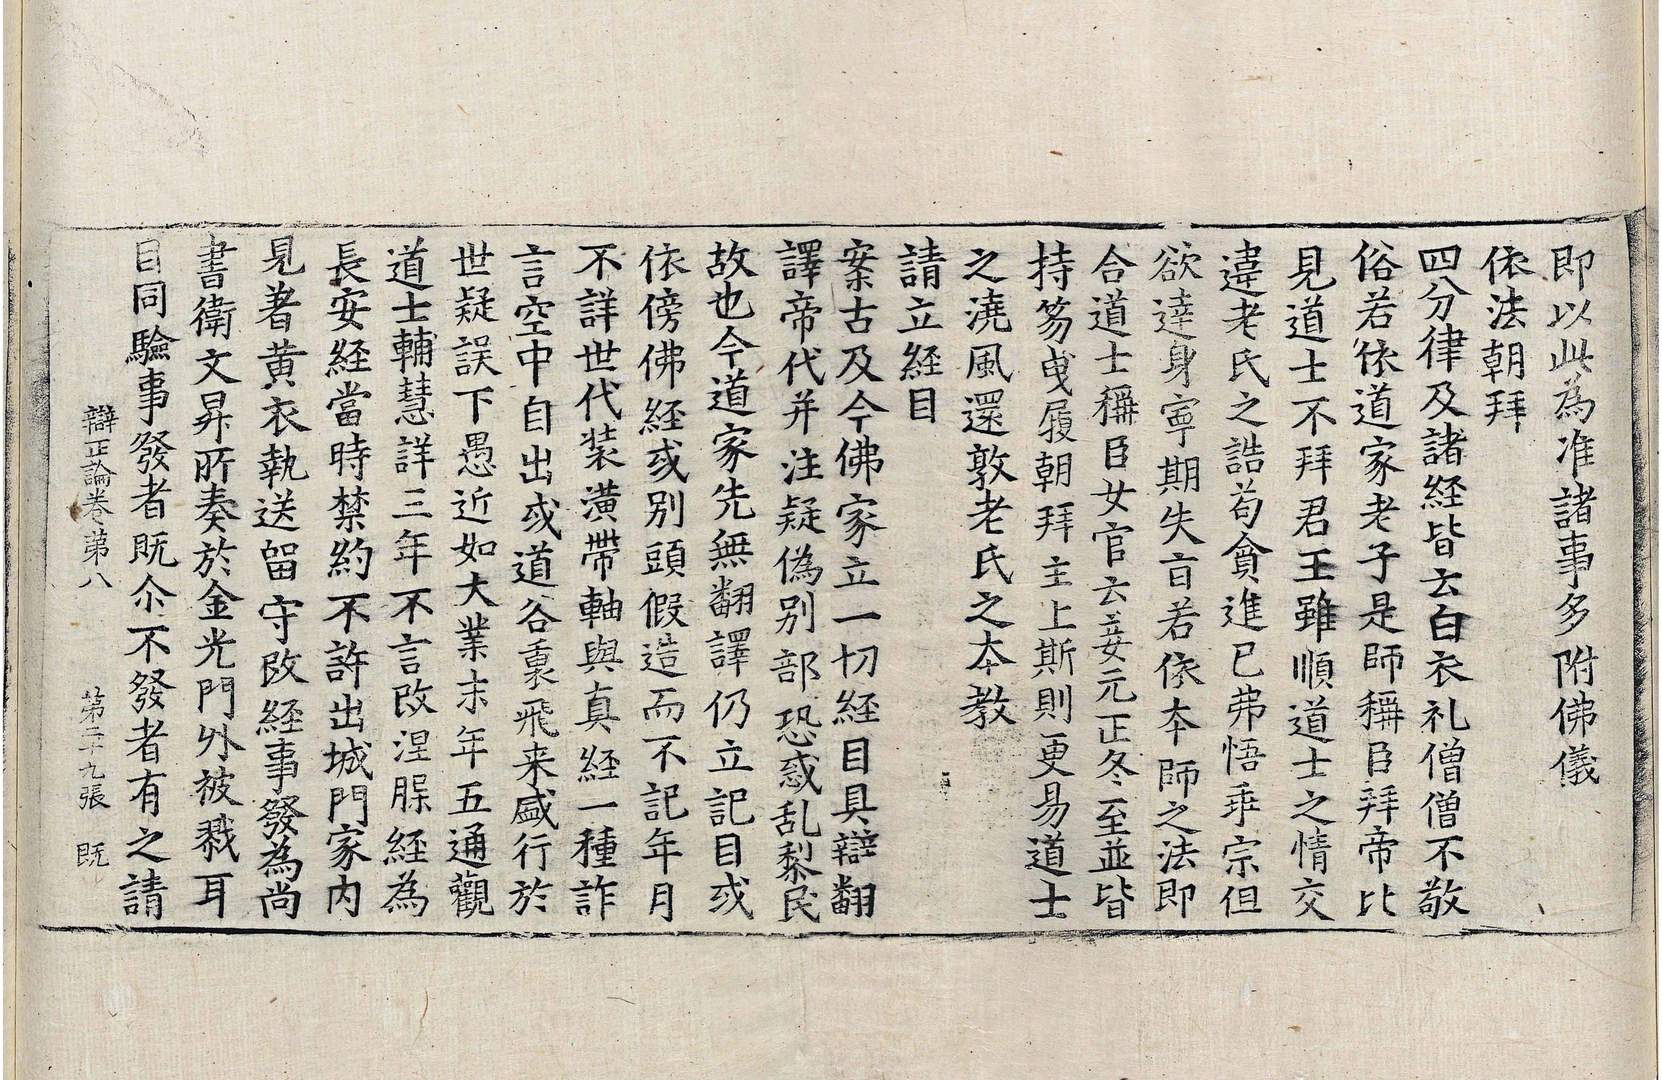 即以此為准諸事多附佛儀
依法朝拜
四分律及諸経皆云白衣礼僧僧不敬
俗若依道家老子是師稱臣拜帝比
見道士不拜君王雖順道士之情交
違老氏之誥苟貪進已弗悟乖宗但
欲達身寧期失㫖若依本師之法即
合道士稱臣女官云妾元正冬至並皆
持笏曵履朝拜主上斯則更易道士
之澆風還敦老氏之本教
請立経目
案古及今佛家立一切経目具辯翻
譯帝代并注疑偽別部恐惑乱黎民
故也今道家先無翻譯仍立記目或
依傍佛経或別頭假造而不記年月
不詳世代装潢帶軸與真経一種詐
言空中自出或道谷裏飛来盛行於
世疑誤下愚近如大業末年五通觀
道士輔慧詳三年不言改涅脵経為
長安経當時禁約不許出城門家内
見著黄衣執送留守改経事發為尚
書衛文昇所奏於金光門外被戮耳
目同驗事發者既尒不發者有之請
辯正論卷苐八 苐三十九張 既